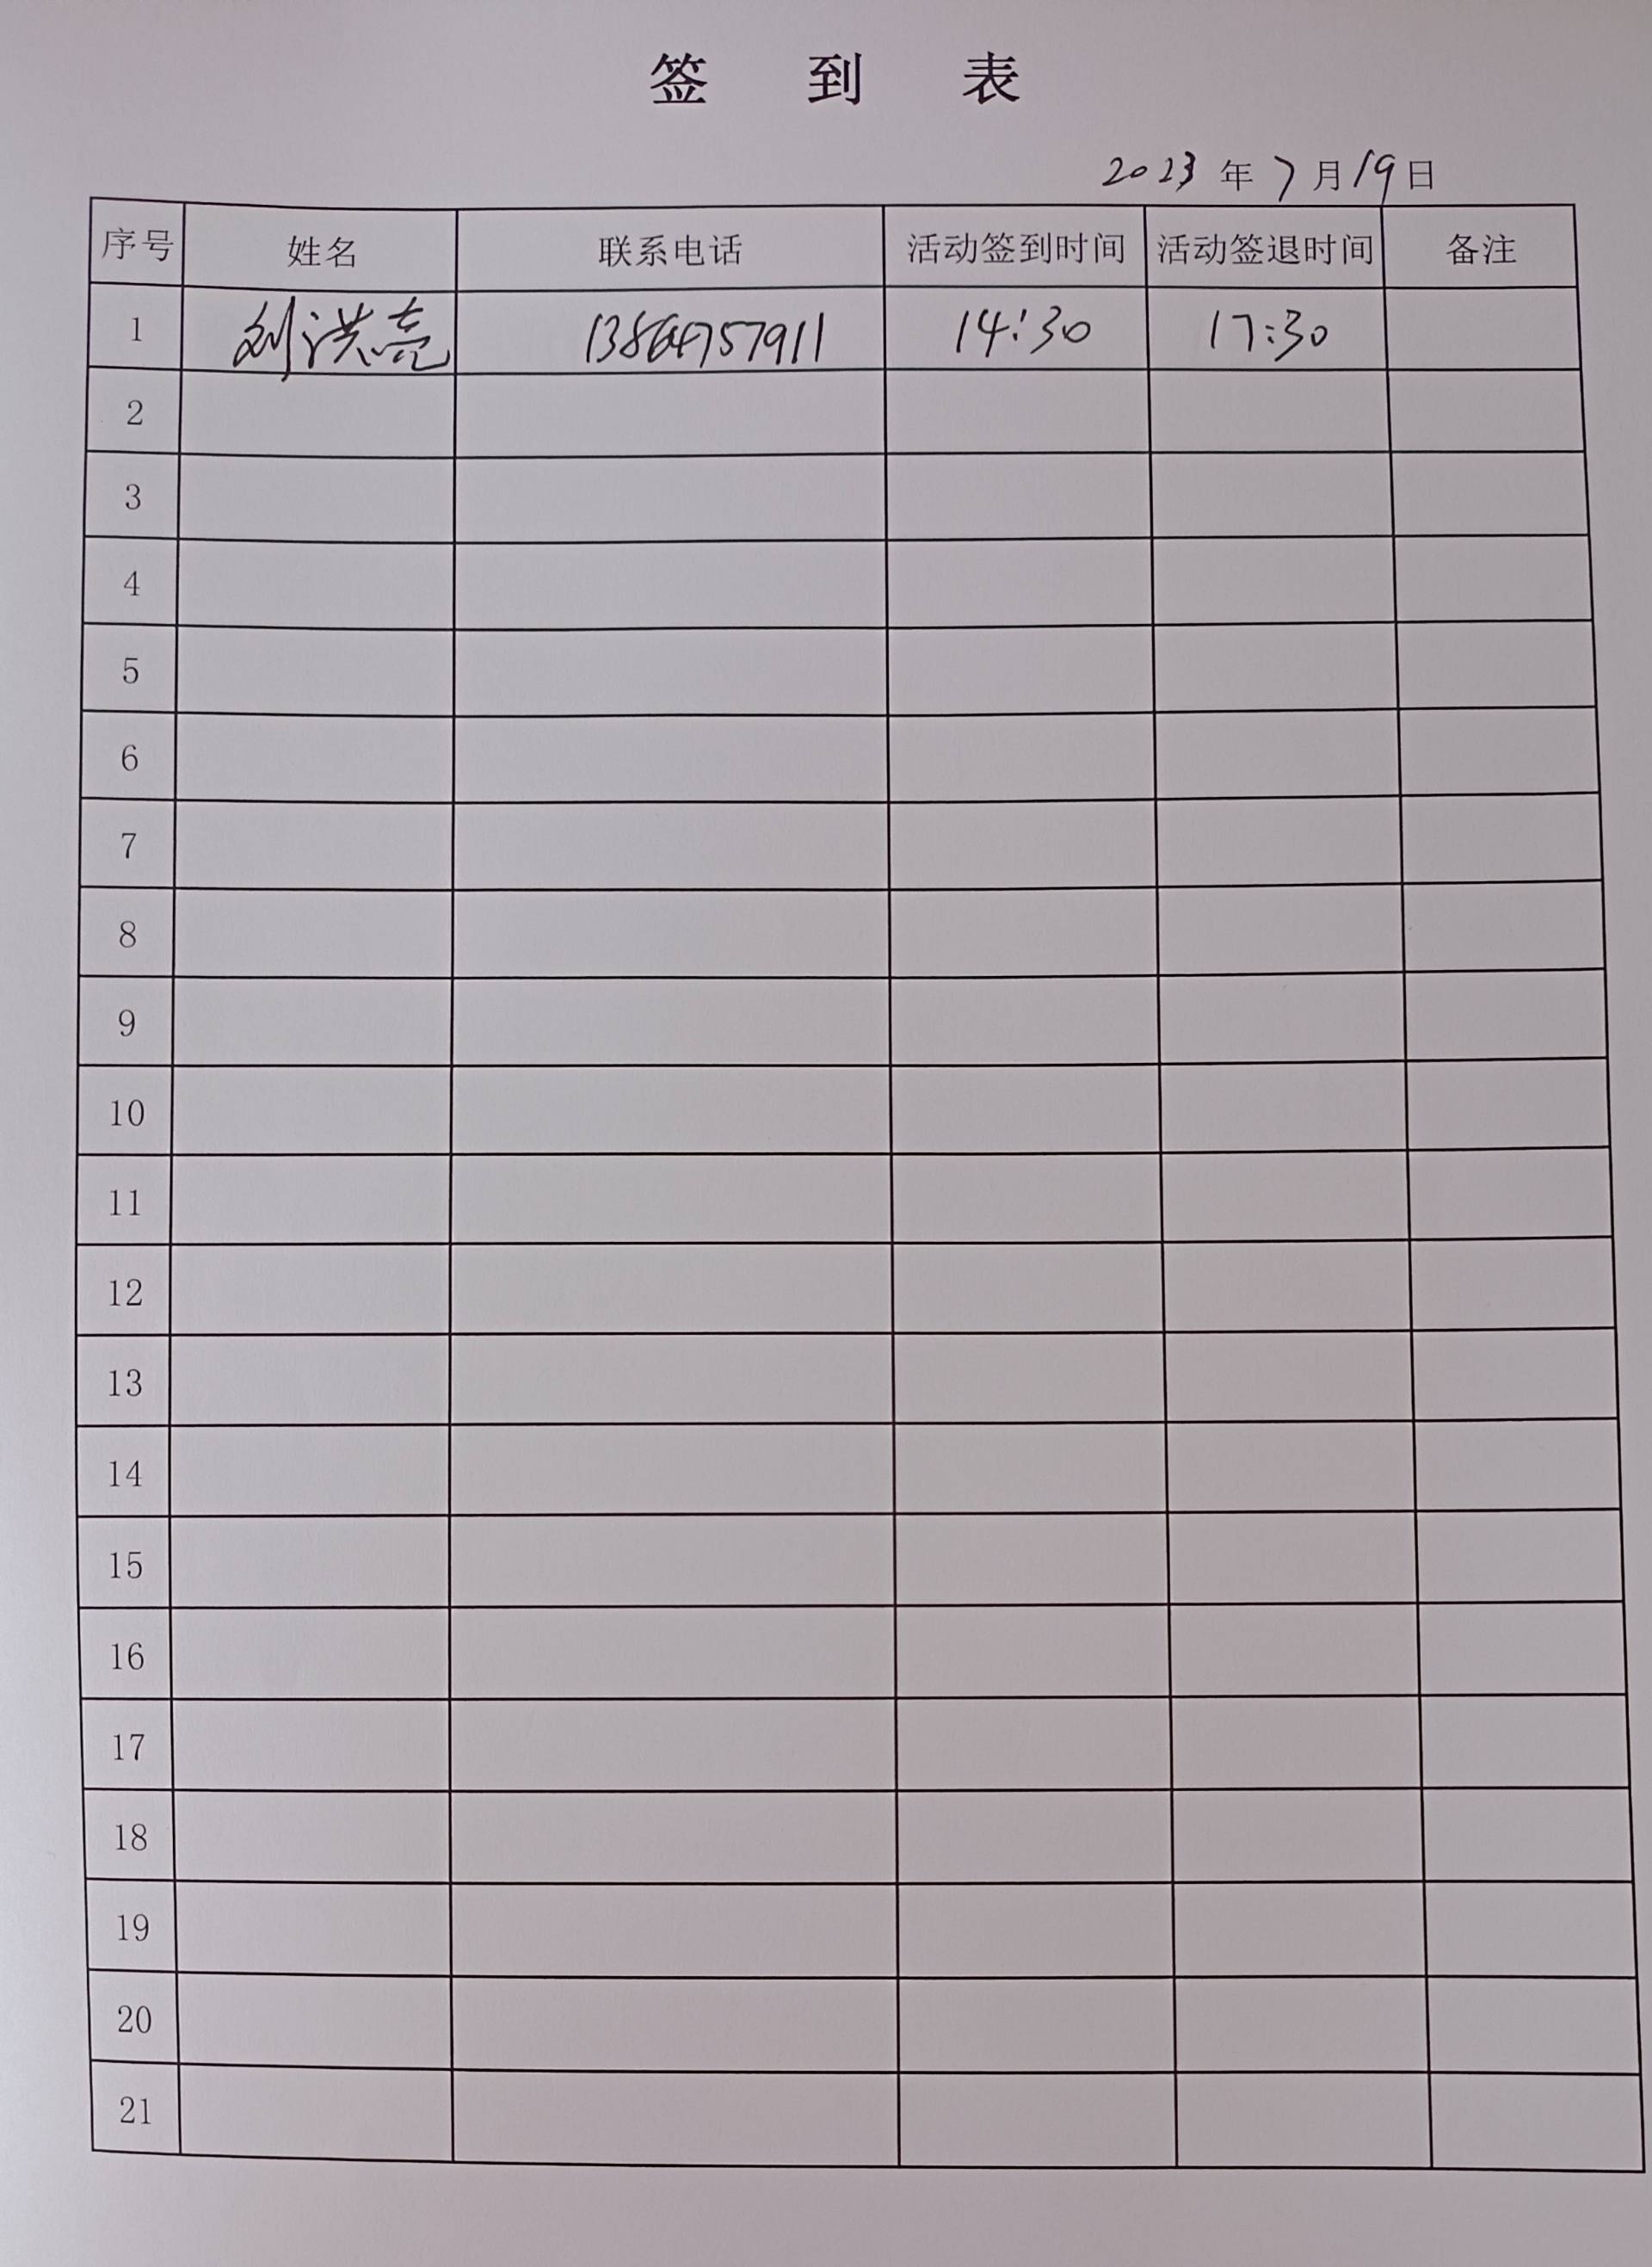 签 到 表
2023 年 7 月 19 日
序号 姓名 联系电话 活动签到时间 活动签退时间 备注
1 刘洪亮 13864757911 14:30 17:30
2
3
4
5
6
7
8
9
10
11
12
13
14
15
16
17
18
19
20
21